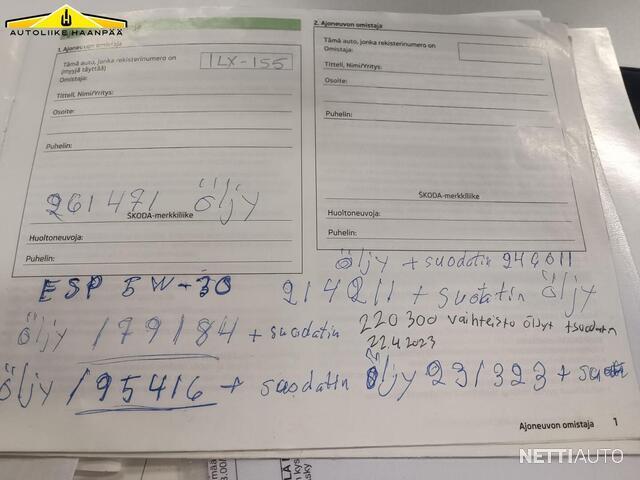 AUTOLIIKE HAANPÄÄ
1. Ajoneuvon omistaja
Tämä auto, jonka rekisterinumero on
(myyjä täyttää)
ILX-155
Omistaja:
Titteli, Nimi/Yritys:
Osoite:
Puhelin:
261471 öljy
ŠKODA-merkkiliike
Huoltoneuvoja:
Puhelin:
2. Ajoneuvon omistaja
Tämä auto, jonka rekisterinumero on
Omistaja:
Titteli, Nimi/Yritys:
Osoite:
Puhelin:
ŠKODA-merkkiliike
Huoltoneuvoja:
Puhelin:
öljy + suodatin
ESP 5W-30
214211 + suotatin öljy
öljy 179184 + suodatin
220 300 vaihteisto öljyt + suodatin
22.4 2023
öljy 195416 + suodatin
öljy 231323 +
Ajoneuvon omistaja 1
NETTIAUTO